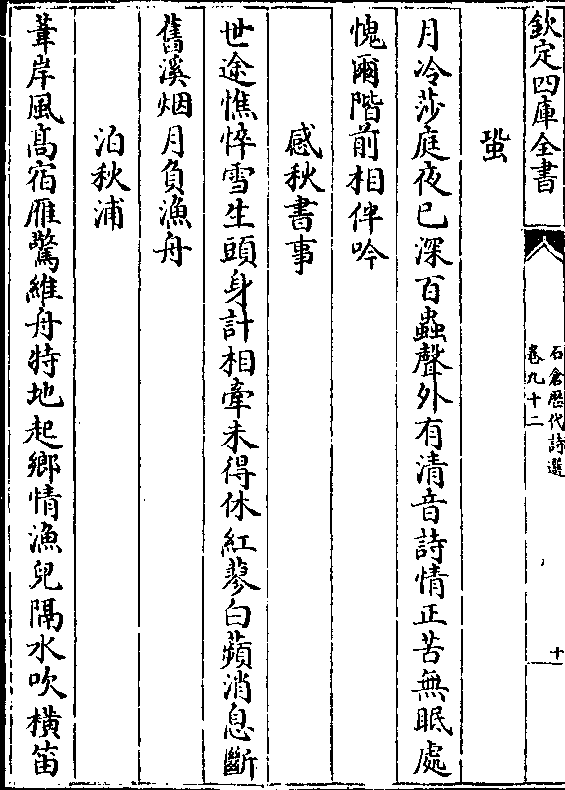 欽定四庫全書
石倉歷代詩選
卷九十二
十
蛩
月冷莎庭夜已深百蟲聲外有清音詩情正苦無眠處
愧爾階前相伴吟
感秋書事
世途憔悴雪生頭身計相牽未得休紅蓼白蘋消息斷
舊溪烟月負漁舟
泊秋浦
葦岸風髙宿雁驚維舟特地起鄉情漁兒隔水吹橫笛